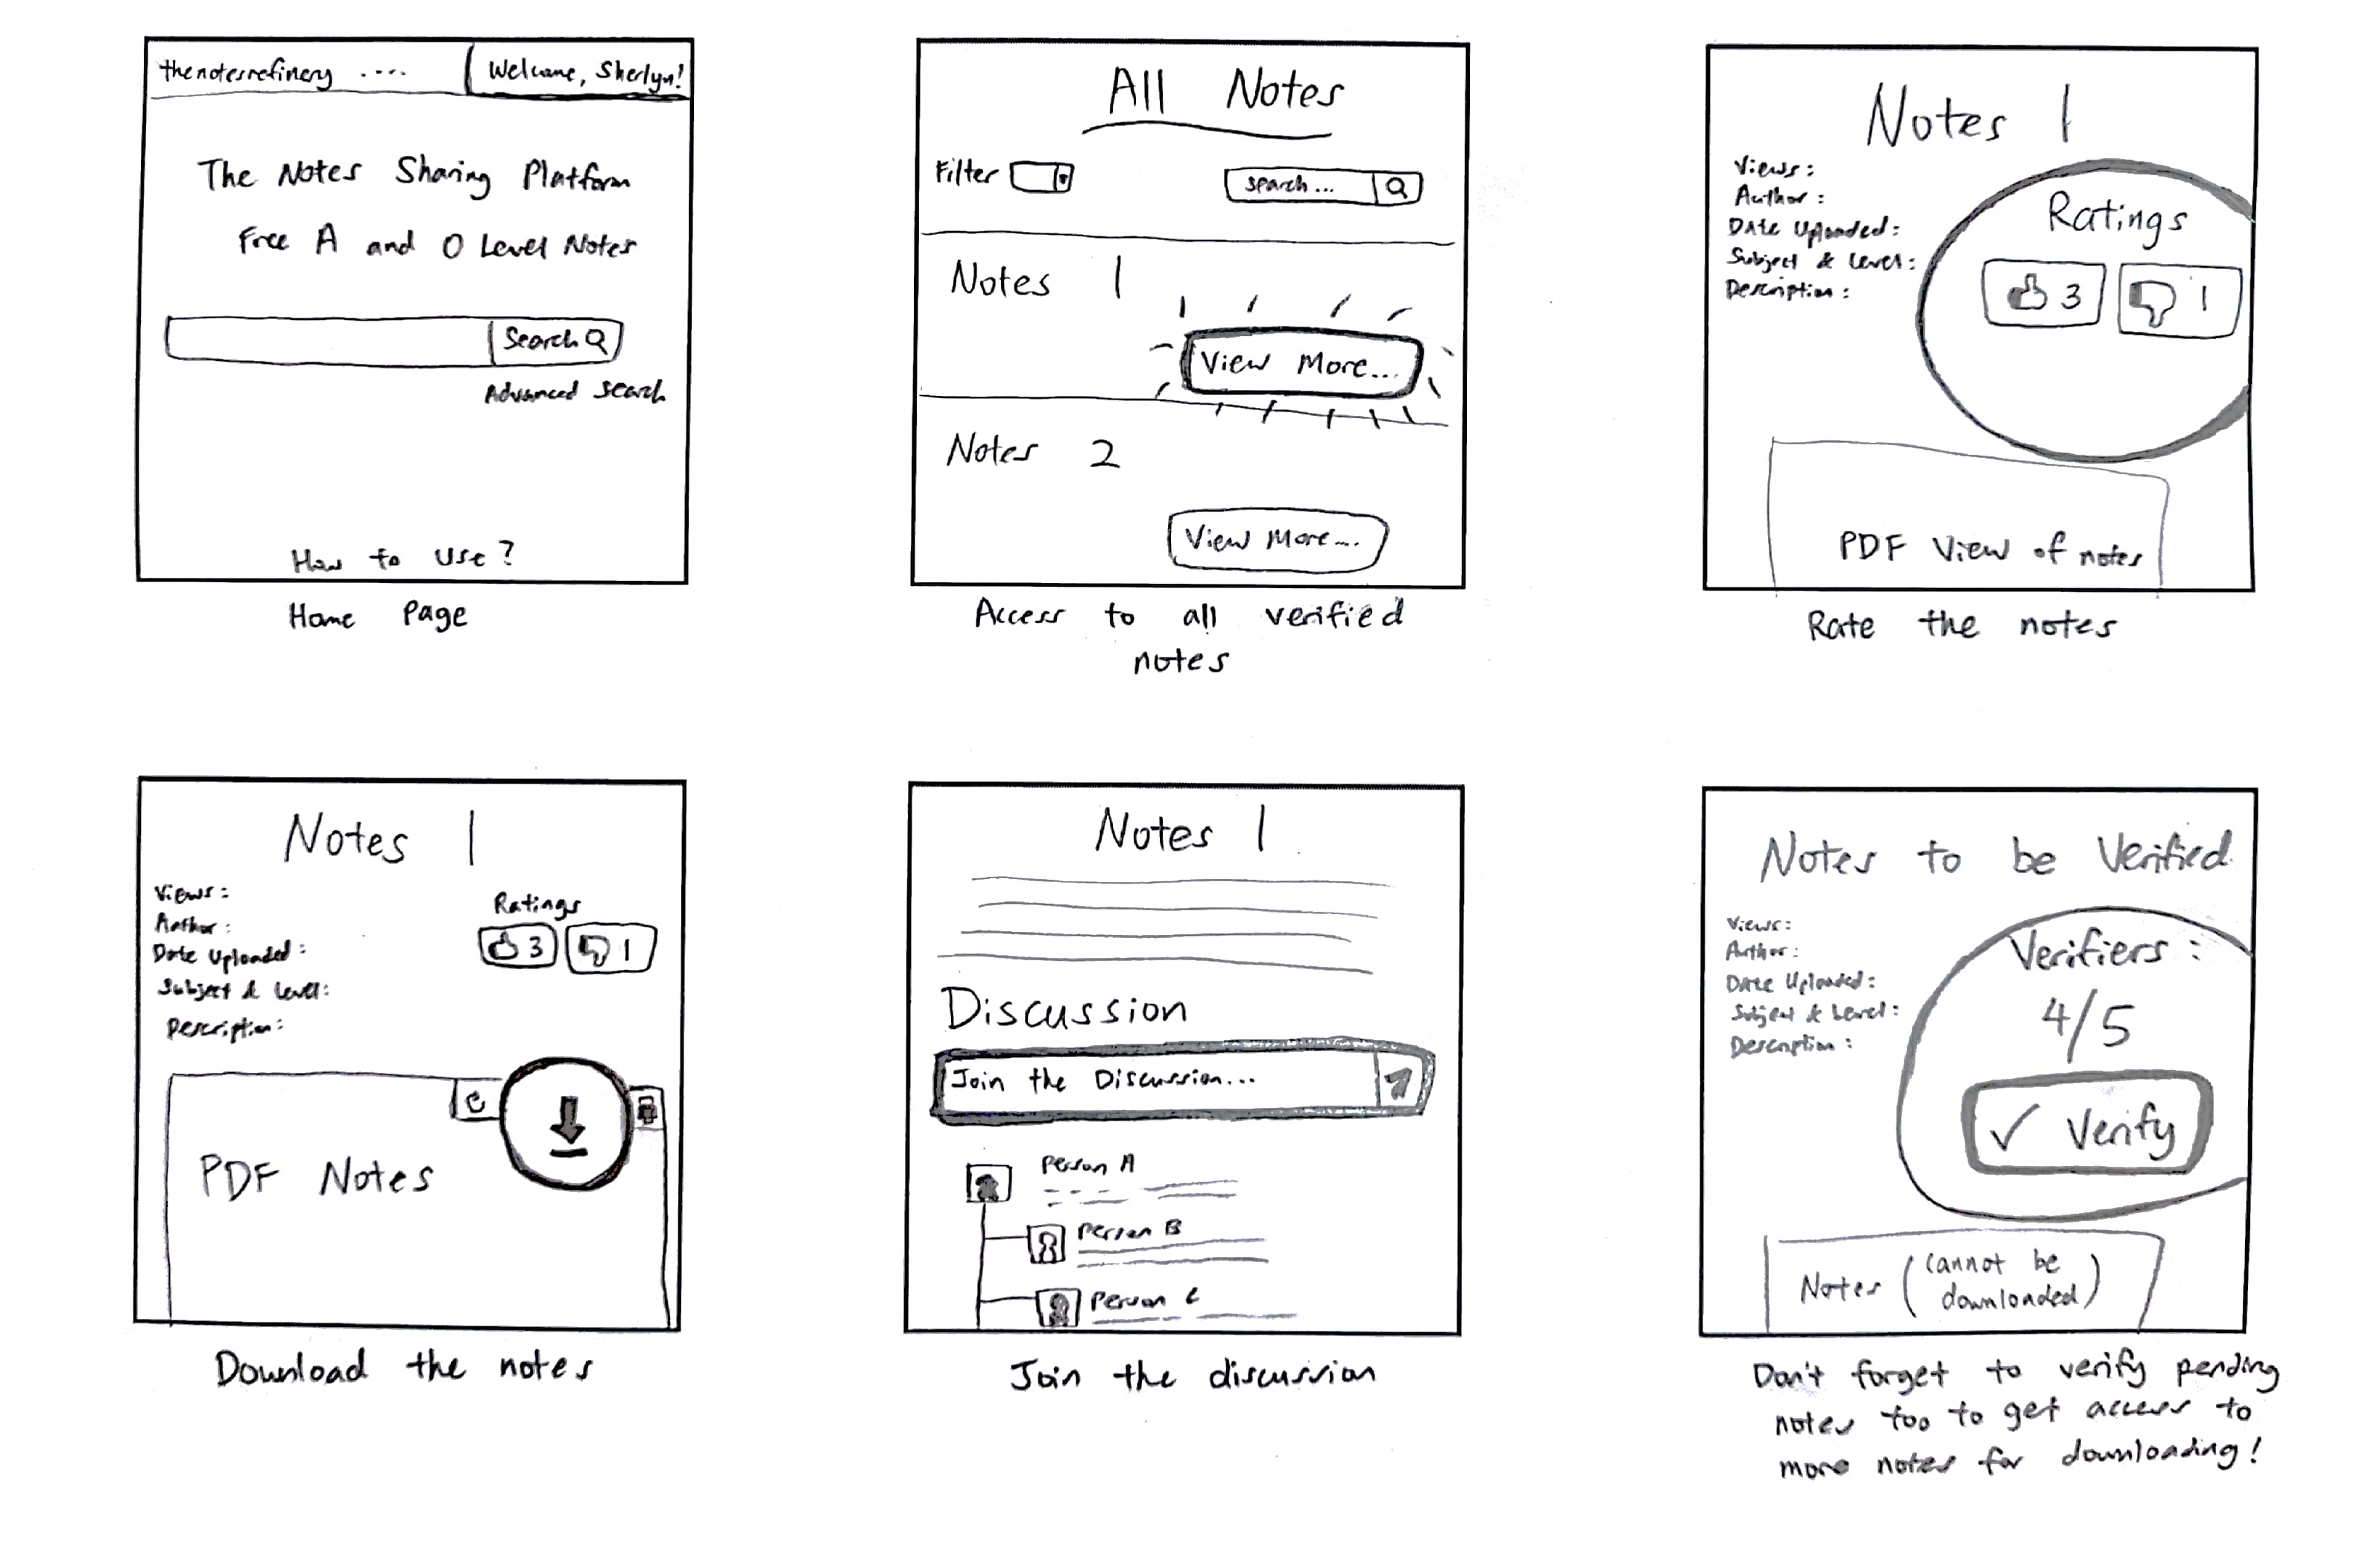 thenotesrefinery ....
Welcome, Sherlyn!
The Notes Sharing Platform
Free A and O Level Notes
Search
Advanced Search
How to Use?
Home Page
All Notes
Filter
search...
Notes 1
View More...
Notes 2
View More...
Access to all verified
notes
Notes 1
Views:
Author:
Date Uploaded:
Subject & Level:
Description:
Ratings
3
1
PDF View of notes
Rate the notes
Notes 1
Views:
Author:
Date Uploaded:
Subject & Level:
Description:
Ratings
3
1
PDF Notes
Download the notes
Notes 1
Discussion
Join the Discussion...
Person A
Person B
Person C
Join the discussion
Notes to be Verified
Views:
Author:
Date Uploaded:
Subject & Level:
Description:
Verifiers:
4/5
✓ Verify
Notes (cannot be
downloaded)
Don't forget to verify pending
notes too to get access to
more notes for downloading!